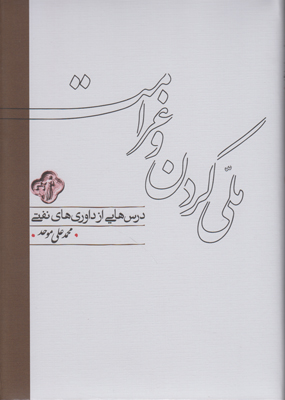 ملّی کردن و غرامت
درس‌هایی از داوری‌های نفتی
محمدعلی موحد